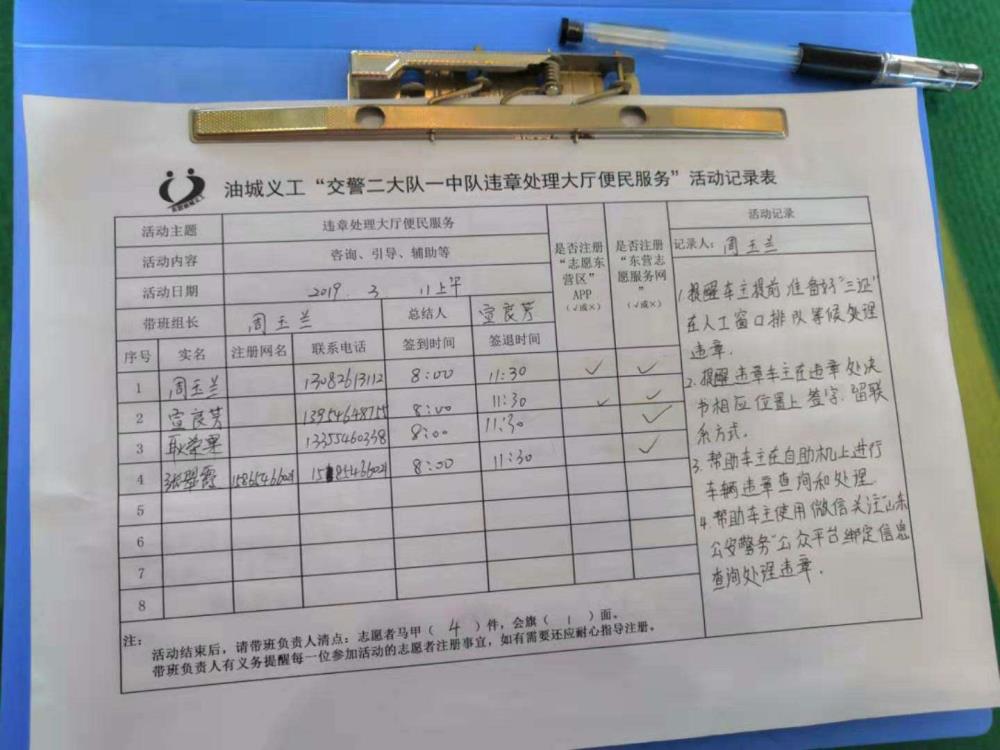 油城义工“交警二大队一中队违章处理大厅便民服务”活动记录表
活动主题 违章处理大厅便民服务
活动内容 咨询、引导、辅助等
活动日期 2019. 3. 11上午
带班组长 周玉兰 总结人 宣良芳
是否注册“志愿东营区”APP（√或×）
是否注册“东营志愿服务网”（√或×）
序号 实名 注册网名 联系电话 签到时间 签退时间
1 周玉兰 13082613112 8:00 11:30 ✓ ✓
2 宣良芳 13954648755 8:00 11:30 ✓ ✓
3 耿荣果 13355460338 8:00 11:30 ✓
4 张翠霞 8:00 11:30 ✓
5
6
7
8
注：
活动结束后，请带班负责人清点：志愿者马甲（ 4 ）件，会旗（ 1 ）面。
带班负责人有义务提醒每一位参加活动的志愿者注册事宜，如有需要还应耐心指导注册。
活动记录
记录人：周玉兰
1.提醒车主提前准备好“三证”
在人工窗口排队等候处理
违章.
2.提醒违章车主在违章处决
书相应位置上签字.留联
系方式.
3.帮助车主在自助机上进行
车辆违章查询和处理.
4.帮助车主使用微信关注“山东
公安警务”公众平台绑定信息
查询处理违章.